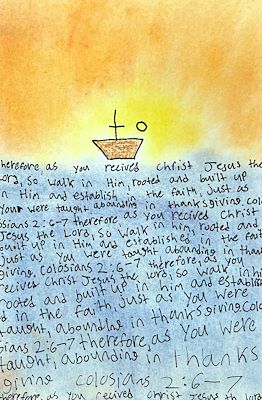 herefore as you recived Christ Jesus the
Lord, so walk in Him, rooted and built up
in Him and establish the faith, just as
your were taught abounding in thanksgiving. colo
sians 2:6-7 therefore as you recived Christ
Jesus the Lord, so walk in him, rooted and
built up in Him and established in the fait
just as you were taught abounding in than
giving. colosians 2:6-7 therefore, as you
recived Christ Jesus the lord, so walk in hi
rooted and built up in him and establis
d in the faith, just as you were
taught, abounding in thanksgiving Colo
sians 2:6-7 therefore, as you were
taught, abounding in thanks
giving colosians 2:6-7
therefore, as you recived Christ Jesus th lord